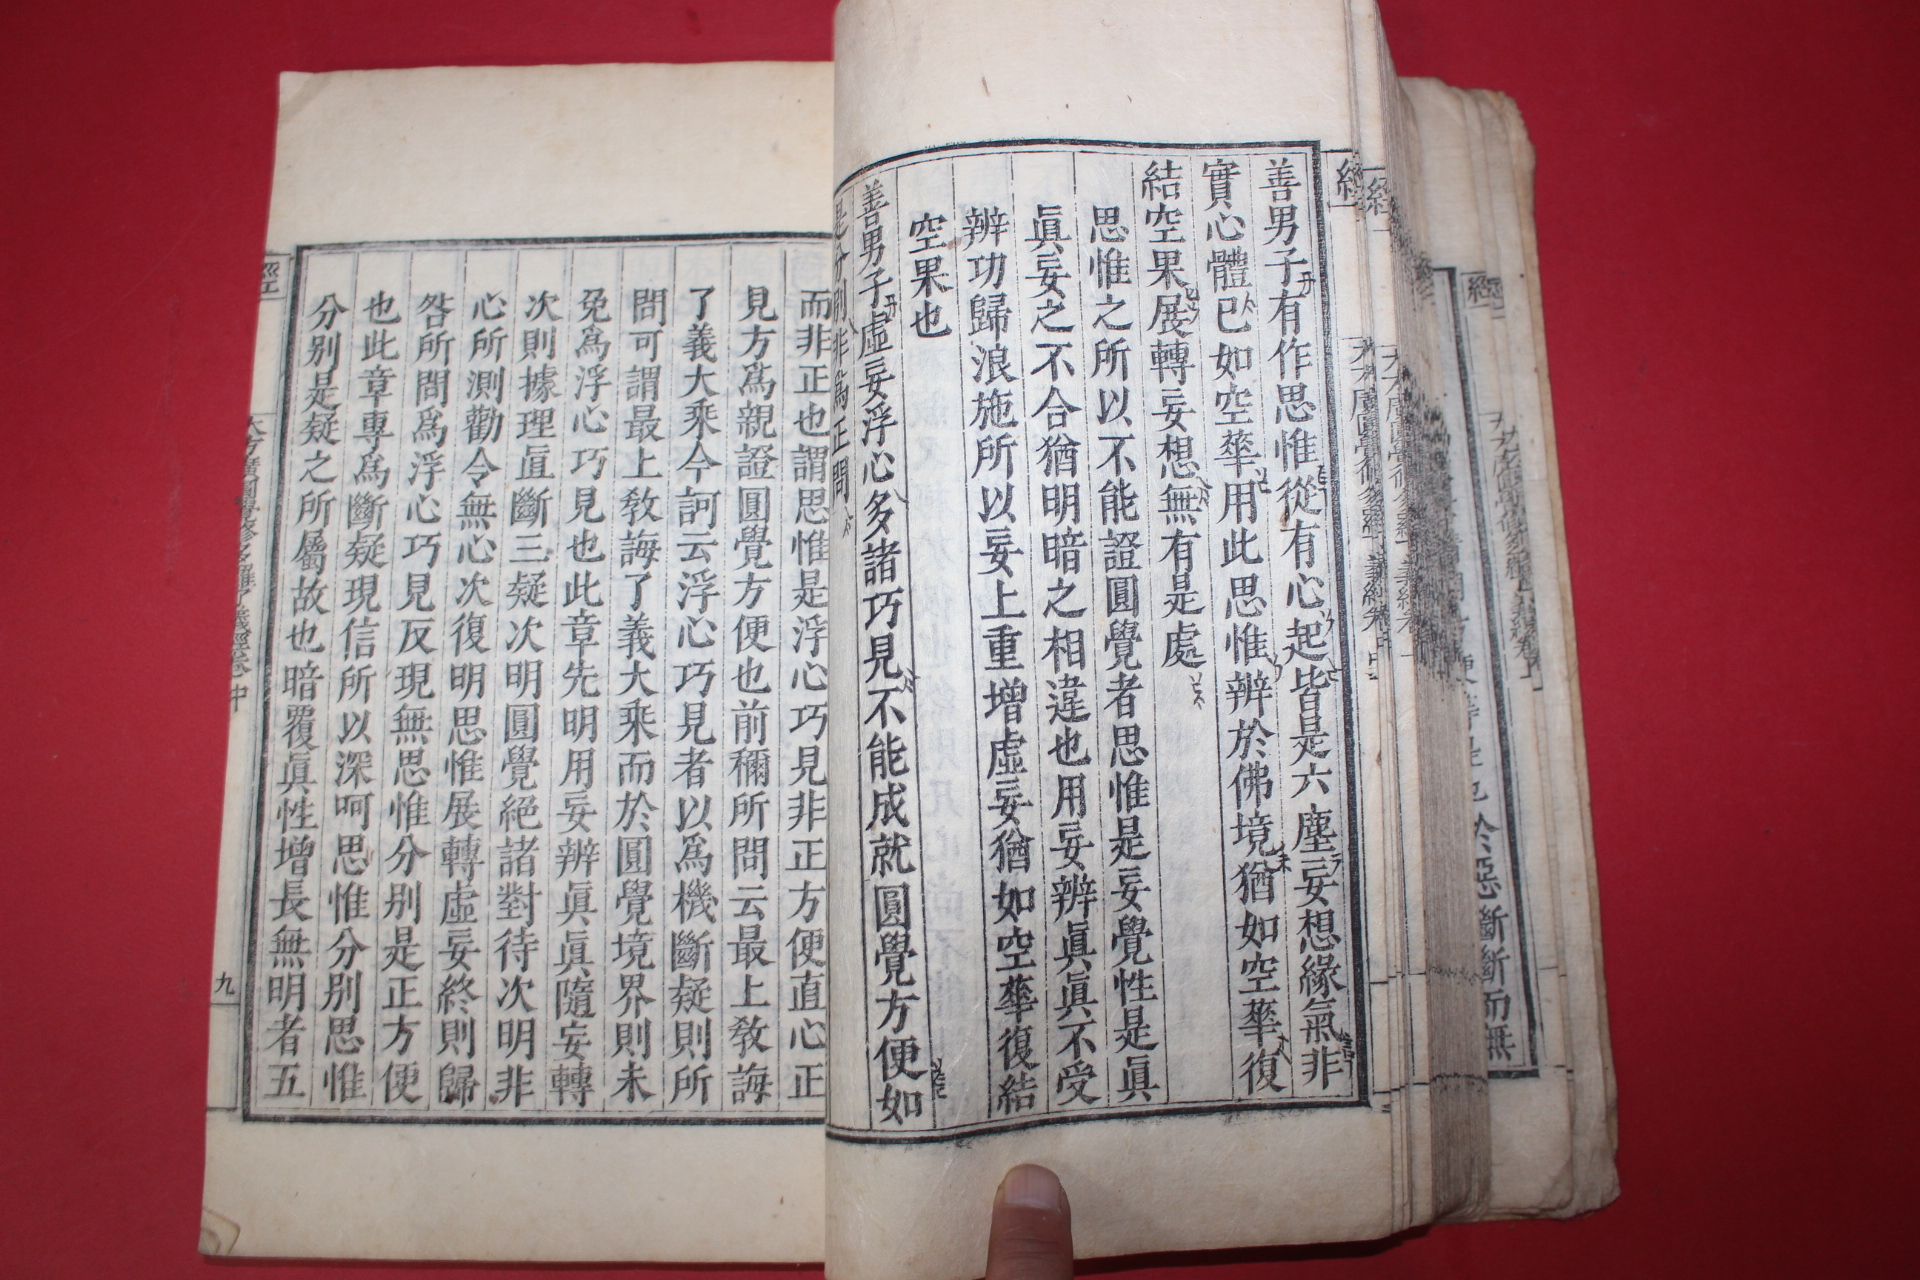 善男子有作思惟從有心起皆是六塵妄想緣氣非
實心體已如空華用此思惟辨於佛境猶如空華復
結空果展轉妄想無有是處
思惟之所以不能證圓覺者思惟是妄覺性是眞
眞妄之不合猶明暗之相違也用妄辨眞眞不受
辨功歸浪施所以妄上重增虛妄猶如空華復結
空果也
善男子虛妄浮心多諸巧見不能成就圓覺方便如
是分別非爲正問
而非正也謂思惟是浮心巧見非正方便直心正
見方爲親證圓覺方便也前稱所問云最上敎誨
了義大乘今訶云浮心巧見者以爲機斷疑則所
問可謂最上敎誨了義大乘而於圓覺境界則未
免爲浮心巧見也此章先明用妄辨眞眞隨妄轉
次則據理直斷三疑次明圓覺絕諸對待次明非
心所測勸令無心次復明思惟展轉虛妄終則歸
咎所問爲浮心巧見反現無思惟分別是正方便
也此章專爲斷疑現信所以深呵思惟分別思惟
分別是疑之所屬故也暗覆眞性增長無明者五
大方廣圓覺修多羅了義經卷中
九
經
於惡斷斷而無